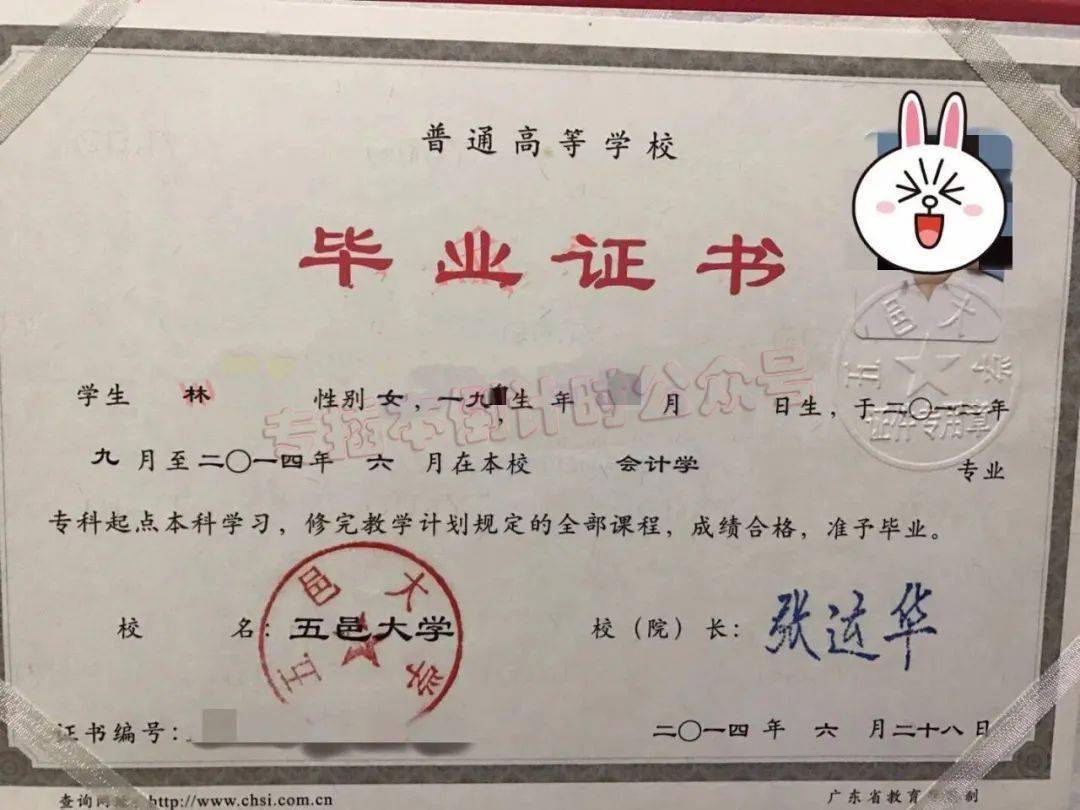 普通高等学校
毕业证书
学生 林 性别 女，一九 生 年 月 日生，于二〇一二年
九 月至二〇一四年 六 月在本校 会计学 专业
专科起点本科学习，修完教学计划规定的全部课程，成绩合格，准予毕业。
校 名：五邑大学 校（院）长：张运华
证书编号：
二〇一四年 六 月二十八日
查询网 http://www.chsi.com.cn
广东省教育 制
专插本倒计时公众号
五邑大学
五邑大学
证件专用章